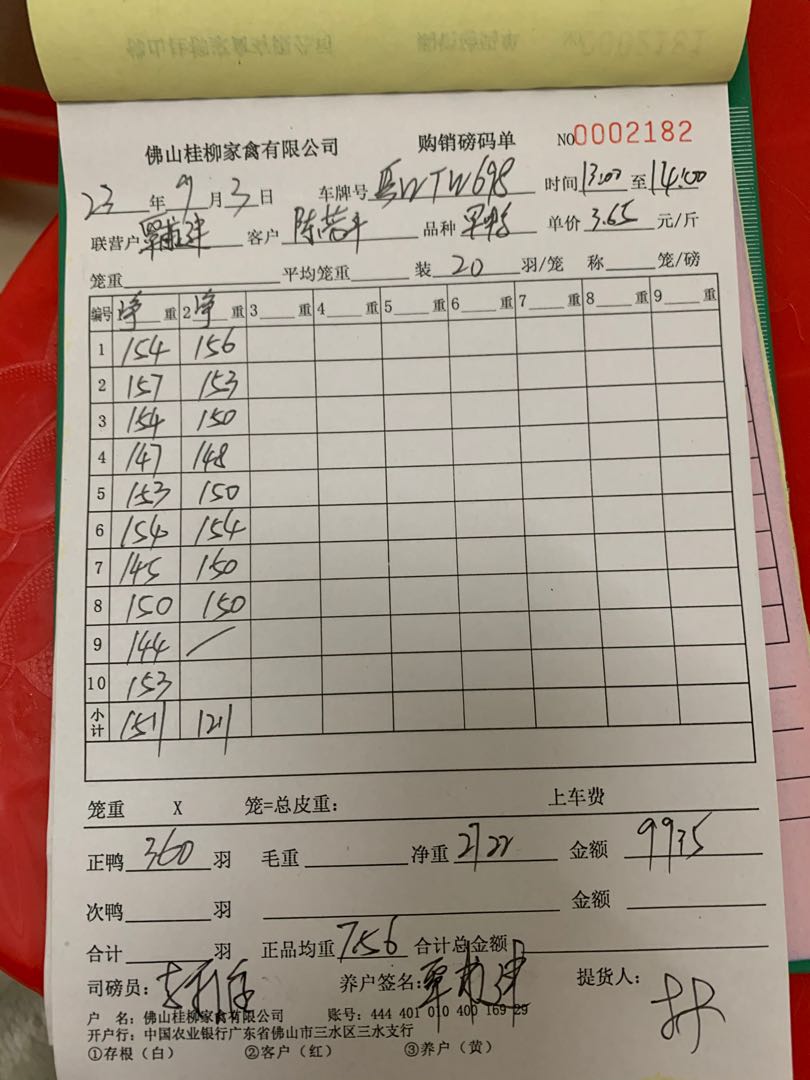 佛山桂柳家禽有限公司 购销磅码单 NO0002182
23年9月3日 车牌号 WTW698 时间13:00至14:00
联营户 客户 陈 品种 单价3.65元/斤
笼重 平均笼重 装20羽/笼 称 笼/磅
编号 1净重 2净重 3 重 4 重 5 重 6 重 7 重 8 重 9 重
1 154 156
2 157 153
3 154 150
4 147 148
5 153 150
6 154 154
7 145 150
8 150 150
9 144 /
10 153
小计 1511 1211
笼重 X 笼=总皮重: 上车费
正鸭360羽 毛重 净重2722 金额 9935
次鸭 羽 金额
合计 羽 正品均重7.56 合计总金额
司磅员: 养户签名: 提货人:
户 名: 佛山桂柳家禽有限公司 账号: 444 401 010 400 169 29
开户行: 中国农业银行广东省佛山市三水区三水支行
①存根(白) ②客户(红) ③养户(黄)